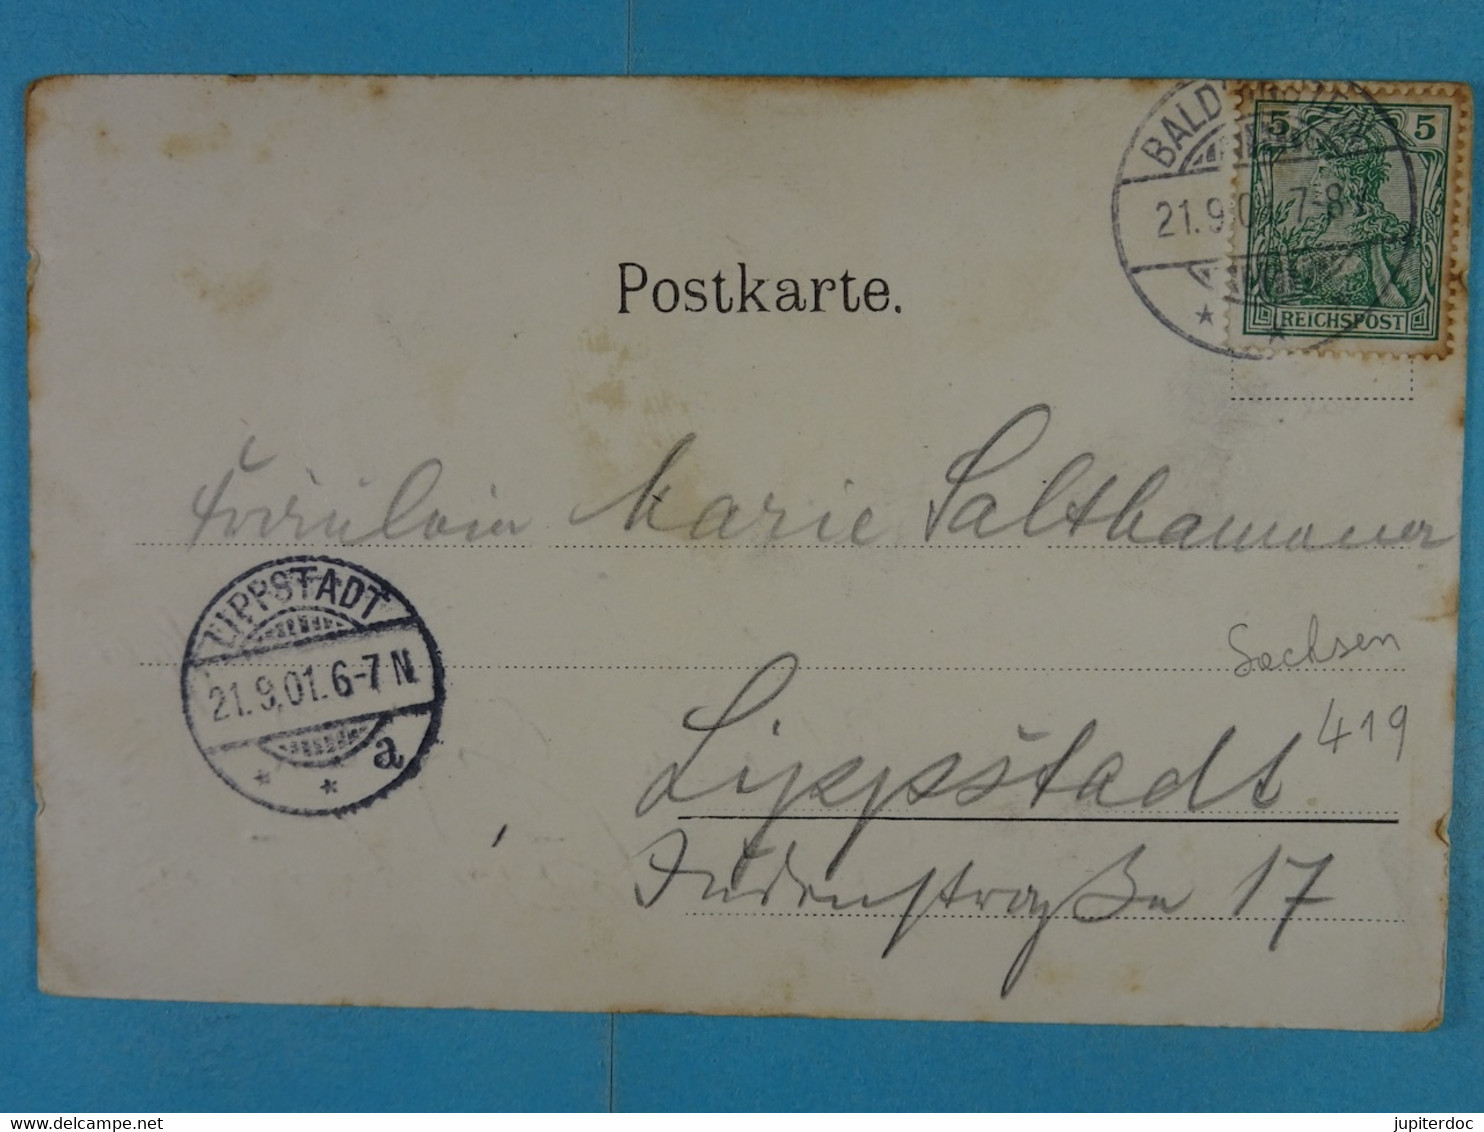 5 5
21.9.01 7-8V
REICHSPOST
Postkarte.
Fräulein Marie Salthammer
LIPPSTADT
21.9.01.6-7N
a
Sachsen
419
Lippstadt
Judenstraße 17
www.delcampe.net
jupiterdoc